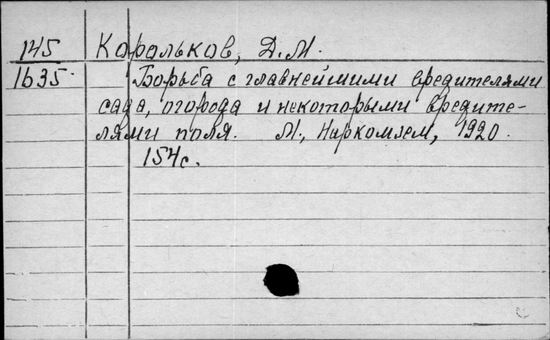 145 Корольков, Д.М.
1635 Борьба с главнейшими вредителями
сада, огорода и некоторыми вредите-
лями поля. М., Наркомзем, 1920.
154с.